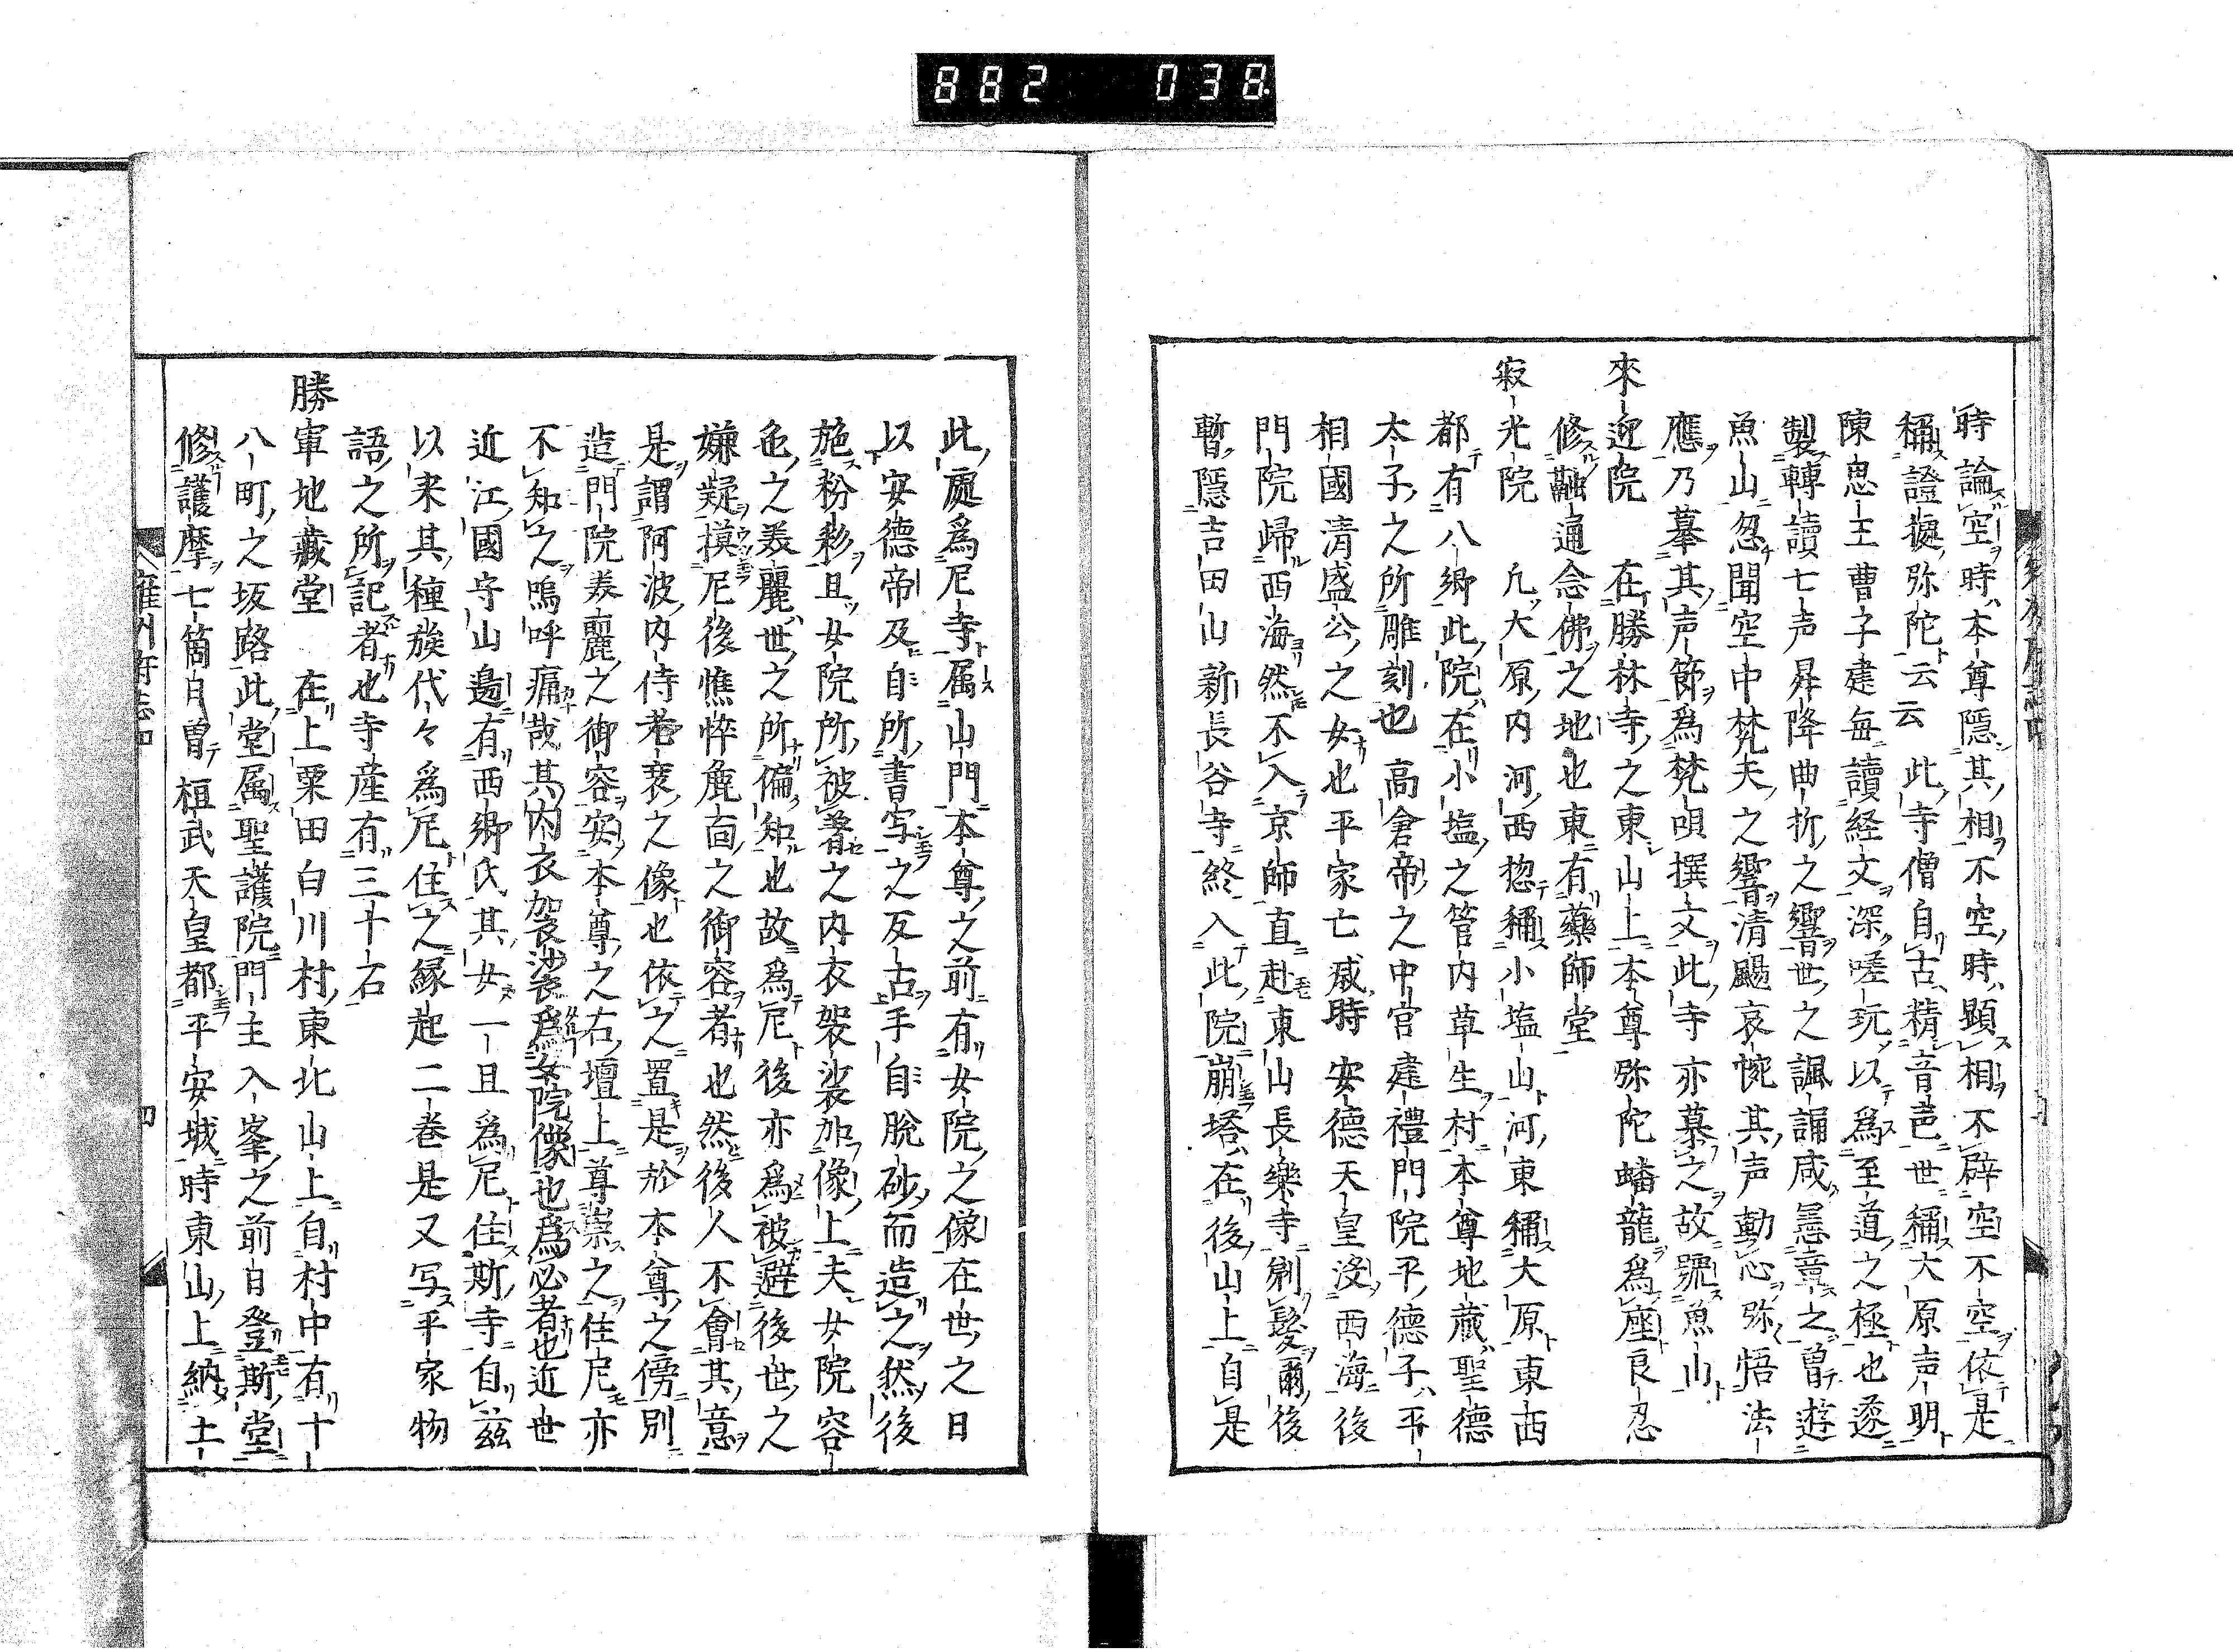 882 038
時論空時本尊隠其相不空時顕相不辟空不空依是
稱證拠弥陀云云此寺僧自古精音邑世稱大原声明
陳思王曹子建毎読経文深嗟玩以為至道之極也遂
製轉讀七声昇降曲折之響世之諷誦咸憲章之曽遊
魚山忽聞空中梵天之響清颺哀惋其声動心弥悟法
應乃摹其声節為梵唄撰文此寺亦慕之故號魚山
來迎院 在勝林寺之東山上本尊弥陀蟠龍為座良忍
修融通念佛之地也東有藥師堂
寂光院 凡大原内河西惣稱小塩山河東稱大原東西
都有八郷此院在小塩之管内草生村本尊地蔵聖德
太子之所雕刻也高倉帝之中宮建禮門院平德子平
相國清盛公之女也平家亡滅時安德天皇没西海後
門院歸西海然不入京師直赴東山長樂寺剃髮爾後
暫隠吉田山新長谷寺終入此院崩塔在後山上自是
此處為尼寺属山門本尊之前有女院之像在世之日
以安德帝及自所書写之反古手自脱砂而造之然後
施粉彩且女院所被着之内衣袈裟加像上夫女院容
色之美麗世之所偏知也故為尼後亦為被避後世之
嫌疑摸尼後憔悴麁面之御容者也然後人不會其意
是謂阿波内侍老衰之像也依之置是於本尊之傍別
造門院美麗之御容安本尊之右壇上尊崇之住尼亦
不知之嗚呼痛哉其内衣袈裟為女院像也為必者也近世
近江國守山邊有西郷氏其女一旦為尼住斯寺自茲
以来其種族代々為尼住之縁起二巻是又写平家物
語之所記者也寺産有三十石
勝軍地藏堂 在上粟田白川村東北山上自村中有十
八町之坂路此堂属聖護院門主入峯之前日登斯堂
修護摩七箇日曽桓武天皇都平安城時東山上納土
雍州府志四 四